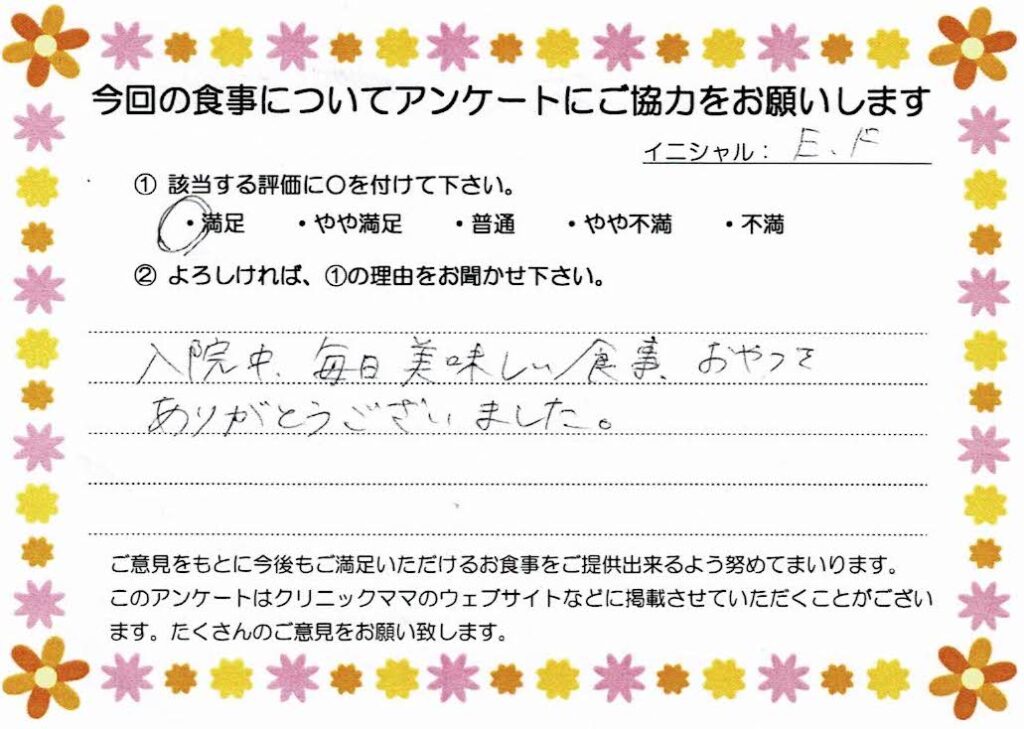 今回の食事についてアンケートにご協力をお願いします
イニシャル： E.F
① 該当する評価に〇を付けて下さい。
・満足 ・やや満足 ・普通 ・やや不満 ・不満
② よろしければ、①の理由をお聞かせ下さい。
入院中、毎日美味しい食事、おやつを
ありがとうございました。
ご意見をもとに今後もご満足いただけるお食事をご提供出来るよう努めてまいります。
このアンケートはクリニックママのウェブサイトなどに掲載させていただくことがござい
ます。たくさんのご意見をお願い致します。